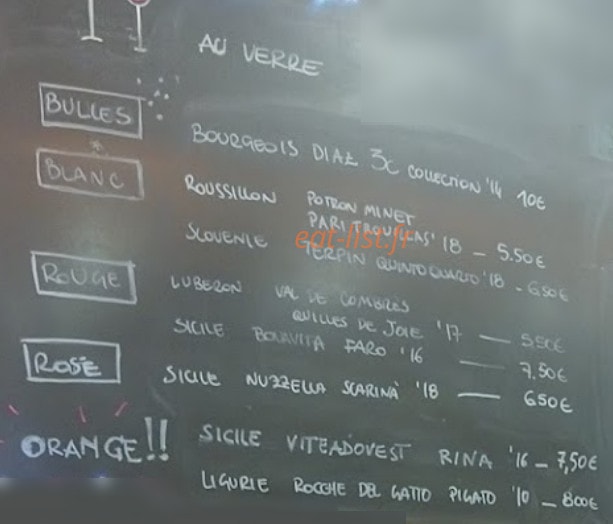 AU VERRE
BULLES
BOURGEOIS DIAZ 3C COLLECTION '14 10€
BLANC
ROUSSILLON POTRON MINET
PARI TROUILLAS '18 - 5.50€
eat-list.fr
SLOVENIE TERPIN QUINTO QUARTO '18 - 6.50€
ROUGE
LUBERON VAL DE COMBRES
QUILLES DE JOIE '17 — 5.50€
SICILE BONAVITA FARO '16 — 7.50€
ROSÉ
SICILE NUZZELLA SCARINÀ '18 — 6.50€
ORANGE!!
SICILE VITEADOVEST RINA '16 - 7,50€
LIGURIE ROCCHE DEL GATTO PIGATO '10 - 8.00€